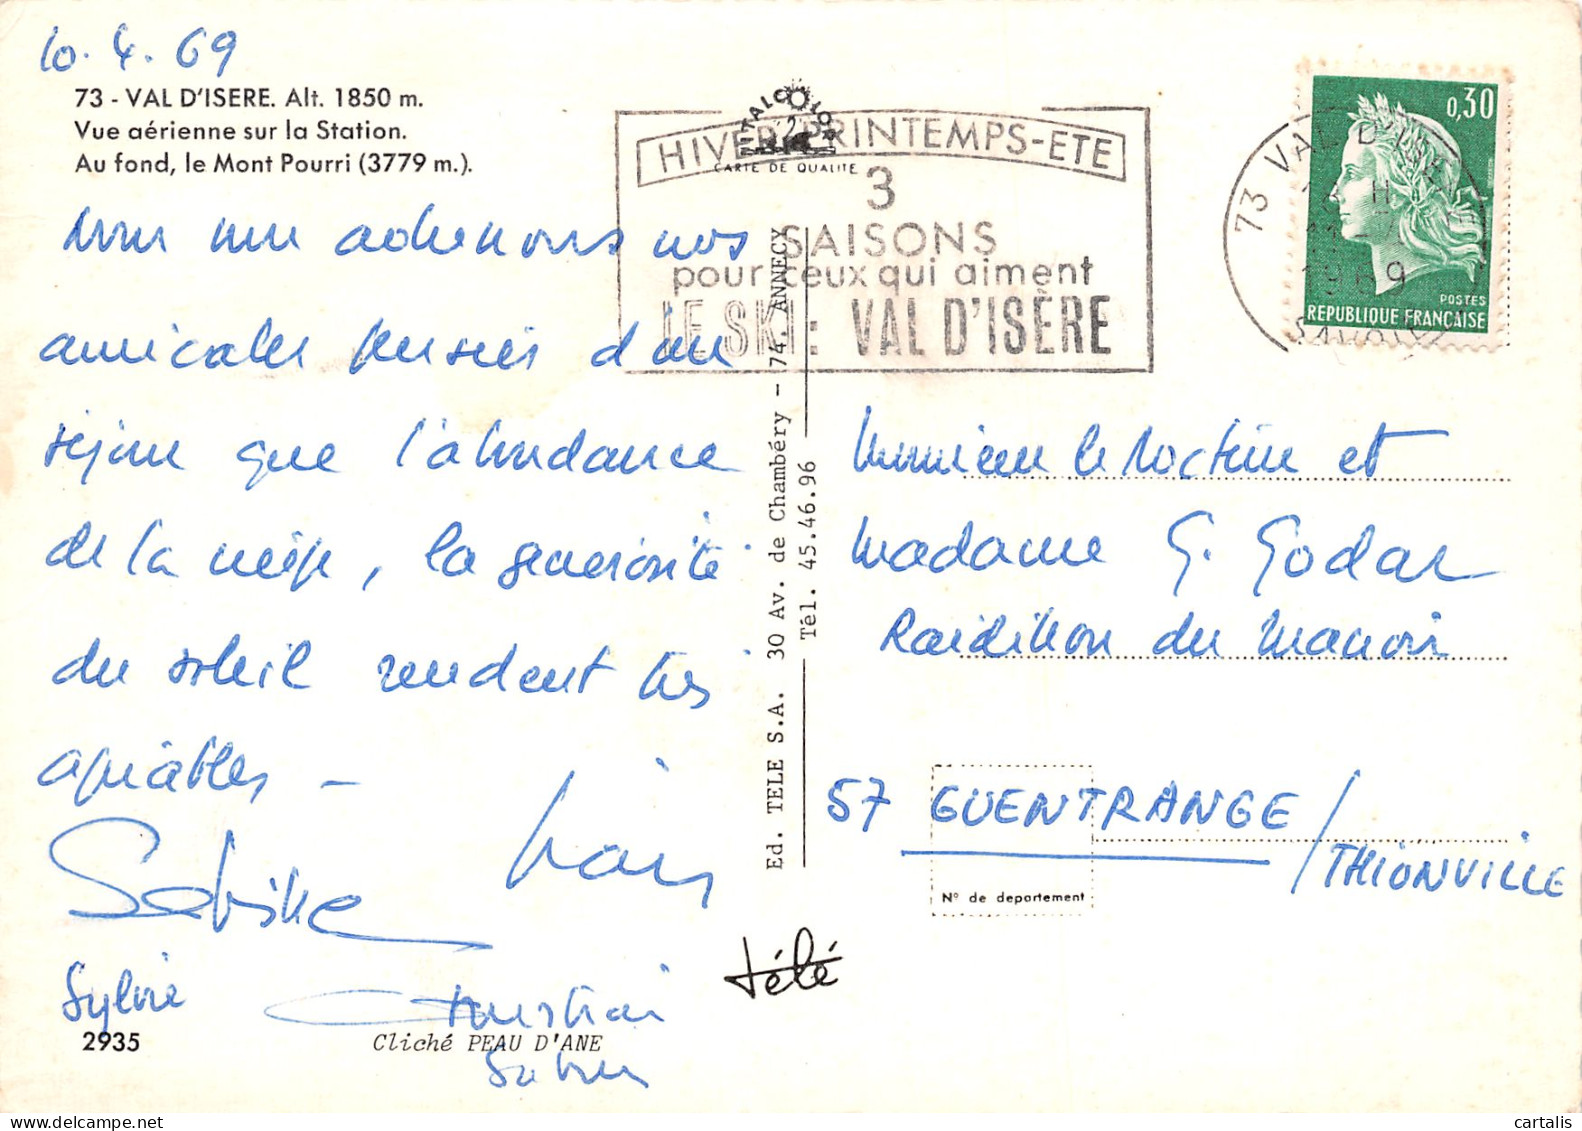 10.4.69
73 - VAL D'ISERE. Alt. 1850 m.
Vue aérienne sur la Station.
Au fond, le Mont Pourri (3779 m.).
ITALCOLOR
2
CARTE DE QUALITE
HIVER-PRINTEMPS-ETE
3
SAISONS
pour ceux qui aiment
LE SKI: VAL D'ISÈRE
73 VAL D'ISERE
1969
SAVOIE
0,30
POSTES
REPUBLIQUE FRANÇAISE
nous vous adressons nos
amicales pensées d'un
séjour que l'abondance
de la neige, la générosité
du soleil rendent très
agréables —
Sylvie
Christian
2935
Cliché PEAU D'ANE
Ed. TELE S.A. 30 Av. de Chambéry - 74. ANNECY
Tél. 45.46.96
télé
Monsieur le Docteur et
Madame G. Godar
Raidillon du Manoir
57 GUENTRANGE/
THIONVILLE
N° de departement
cartalis